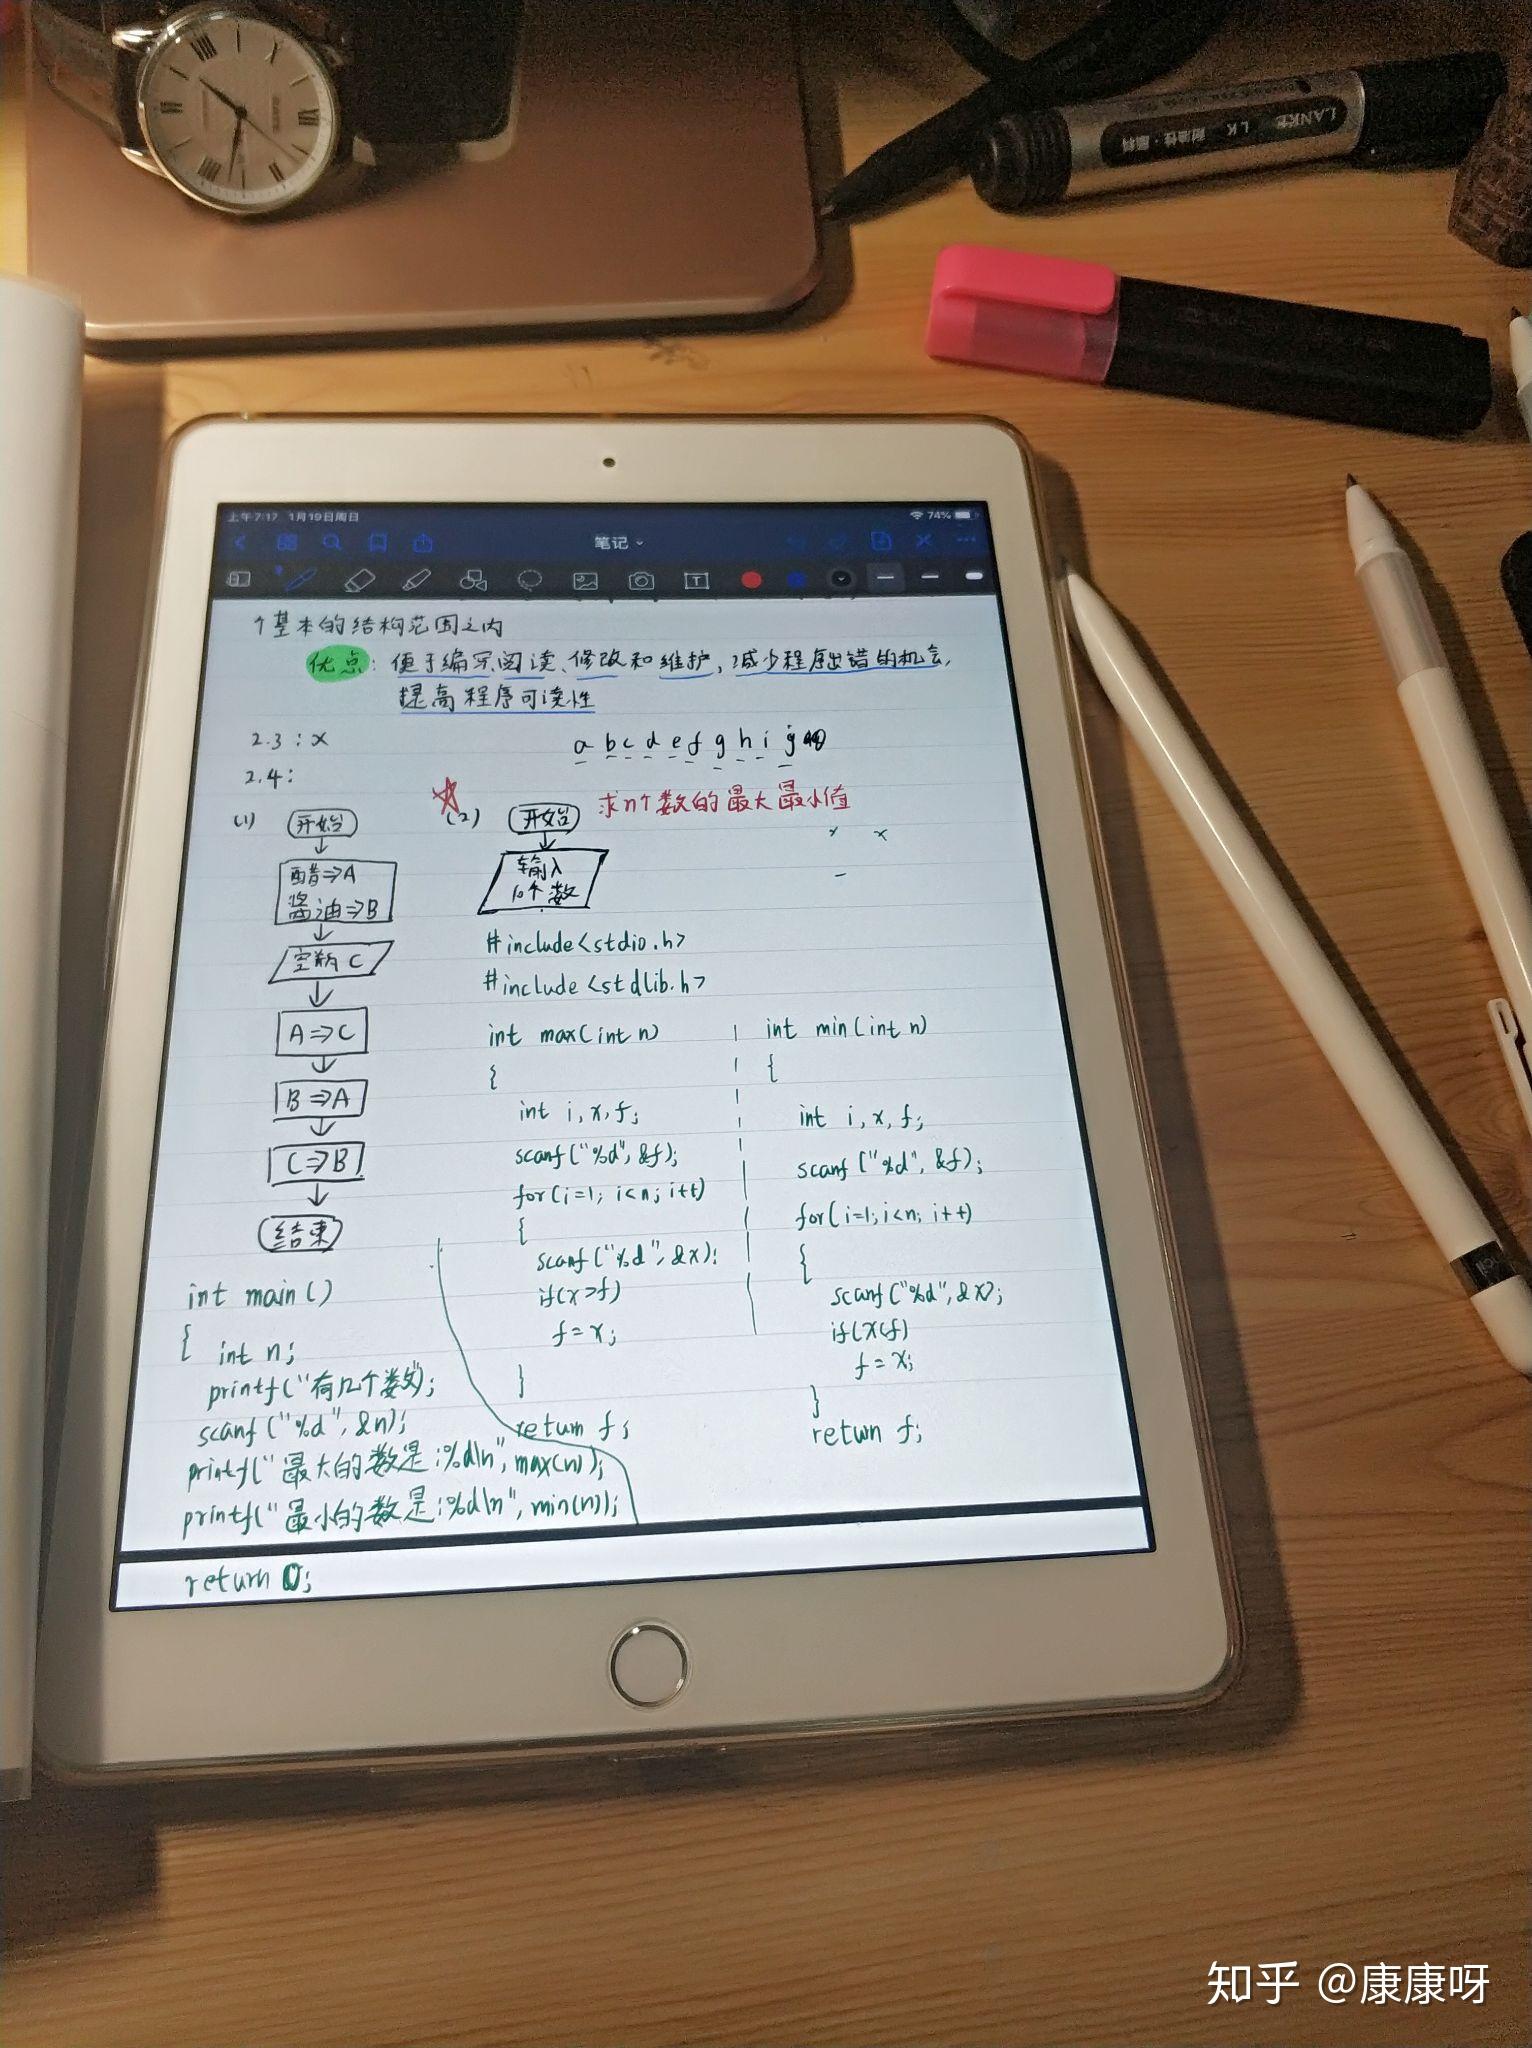 LANKE LK 耐油性·顏料
上午7:17 1月19日周日
74%
笔记
T
个基本的结构范围之内
优点：便于编写阅读、修改和维护，减少程序出错的机会，
提高程序可读性
2.3：x
a b c d e f g h i j
2.4：
求n个数的最大最小值
(1)
开始
醋⇒A
酱油⇒B
空瓶C
A⇒C
B⇒A
C⇒B
结束
(2)
开始
输入
10个数
#include<stdio.h>
#include<stdlib.h>
int max(int n)
{
int i,x,f;
scanf("%d",&f);
for(i=1; i<n; i++)
{
scanf("%d",&x);
if(x>f)
f=x;
}
return f;
int min(int n)
{
int i,x,f;
scanf("%d",&f);
for(i=1;i<n; i++)
{
scanf("%d",&x);
if(x<f)
f=x;
}
return f;
int main()
{
int n;
printf("有几个数");
scanf("%d",&n);
printf("最大的数是:%d\n",max(n));
printf("最小的数是:%d\n",min(n));
return 0;
知乎 @康康呀